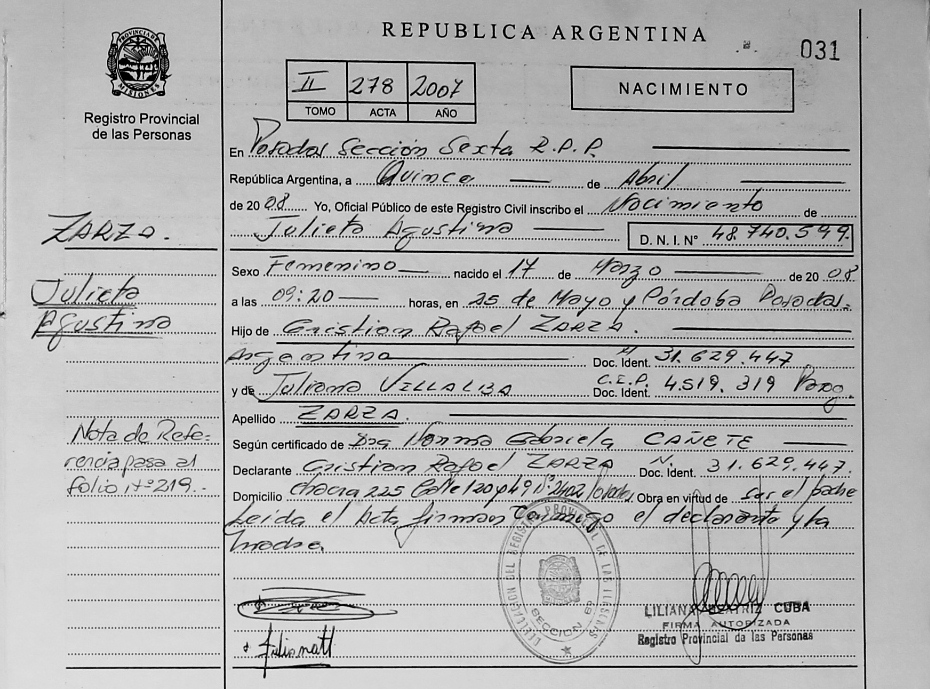 REPUBLICA ARGENTINA
031
PROVINCIA DE MISIONES
Registro Provincial
de las Personas
II 278 2007
TOMO ACTA AÑO
NACIMIENTO
En Posadas Sección Sexta R.P.P.
República Argentina, a Quince de Abril
de 2008 Yo, Oficial Público de este Registro Civil inscribo el Nacimiento de
Julieta Agustina D.N.I. N° 48.740.599.
ZARZA.
Julieta
Agustina
Sexo Femenino nacido el 17 de Marzo de 2008
a las 09:20 horas, en 25 de Mayo y Córdoba Posadas.
Hijo de Cristian Rafael ZARZA.
Argentina Doc. Ident. 31.629.447
y de Juliana VILLALBA C.I.P. Doc. Ident. 4.519.319 Parg.
Apellido ZARZA.
Según certificado de Dra. Norma Gabriela CAÑETE
Declarante Cristian Rafael ZARZA N. Doc. Ident. 31.629.447.
Domicilio Chacra 225 Calle 120 y 49 N° 2402 Posadas. Obra en virtud de ser el padre
Leida el Acta firman conmigo el declarante y la
madre.
Nota de Refe-
rencia pasa al
folio N° 219.-
SECCION 6ª
LILIANA BEATRIZ CUBA
FIRMA AUTORIZADA
Registro Provincial de las Personas